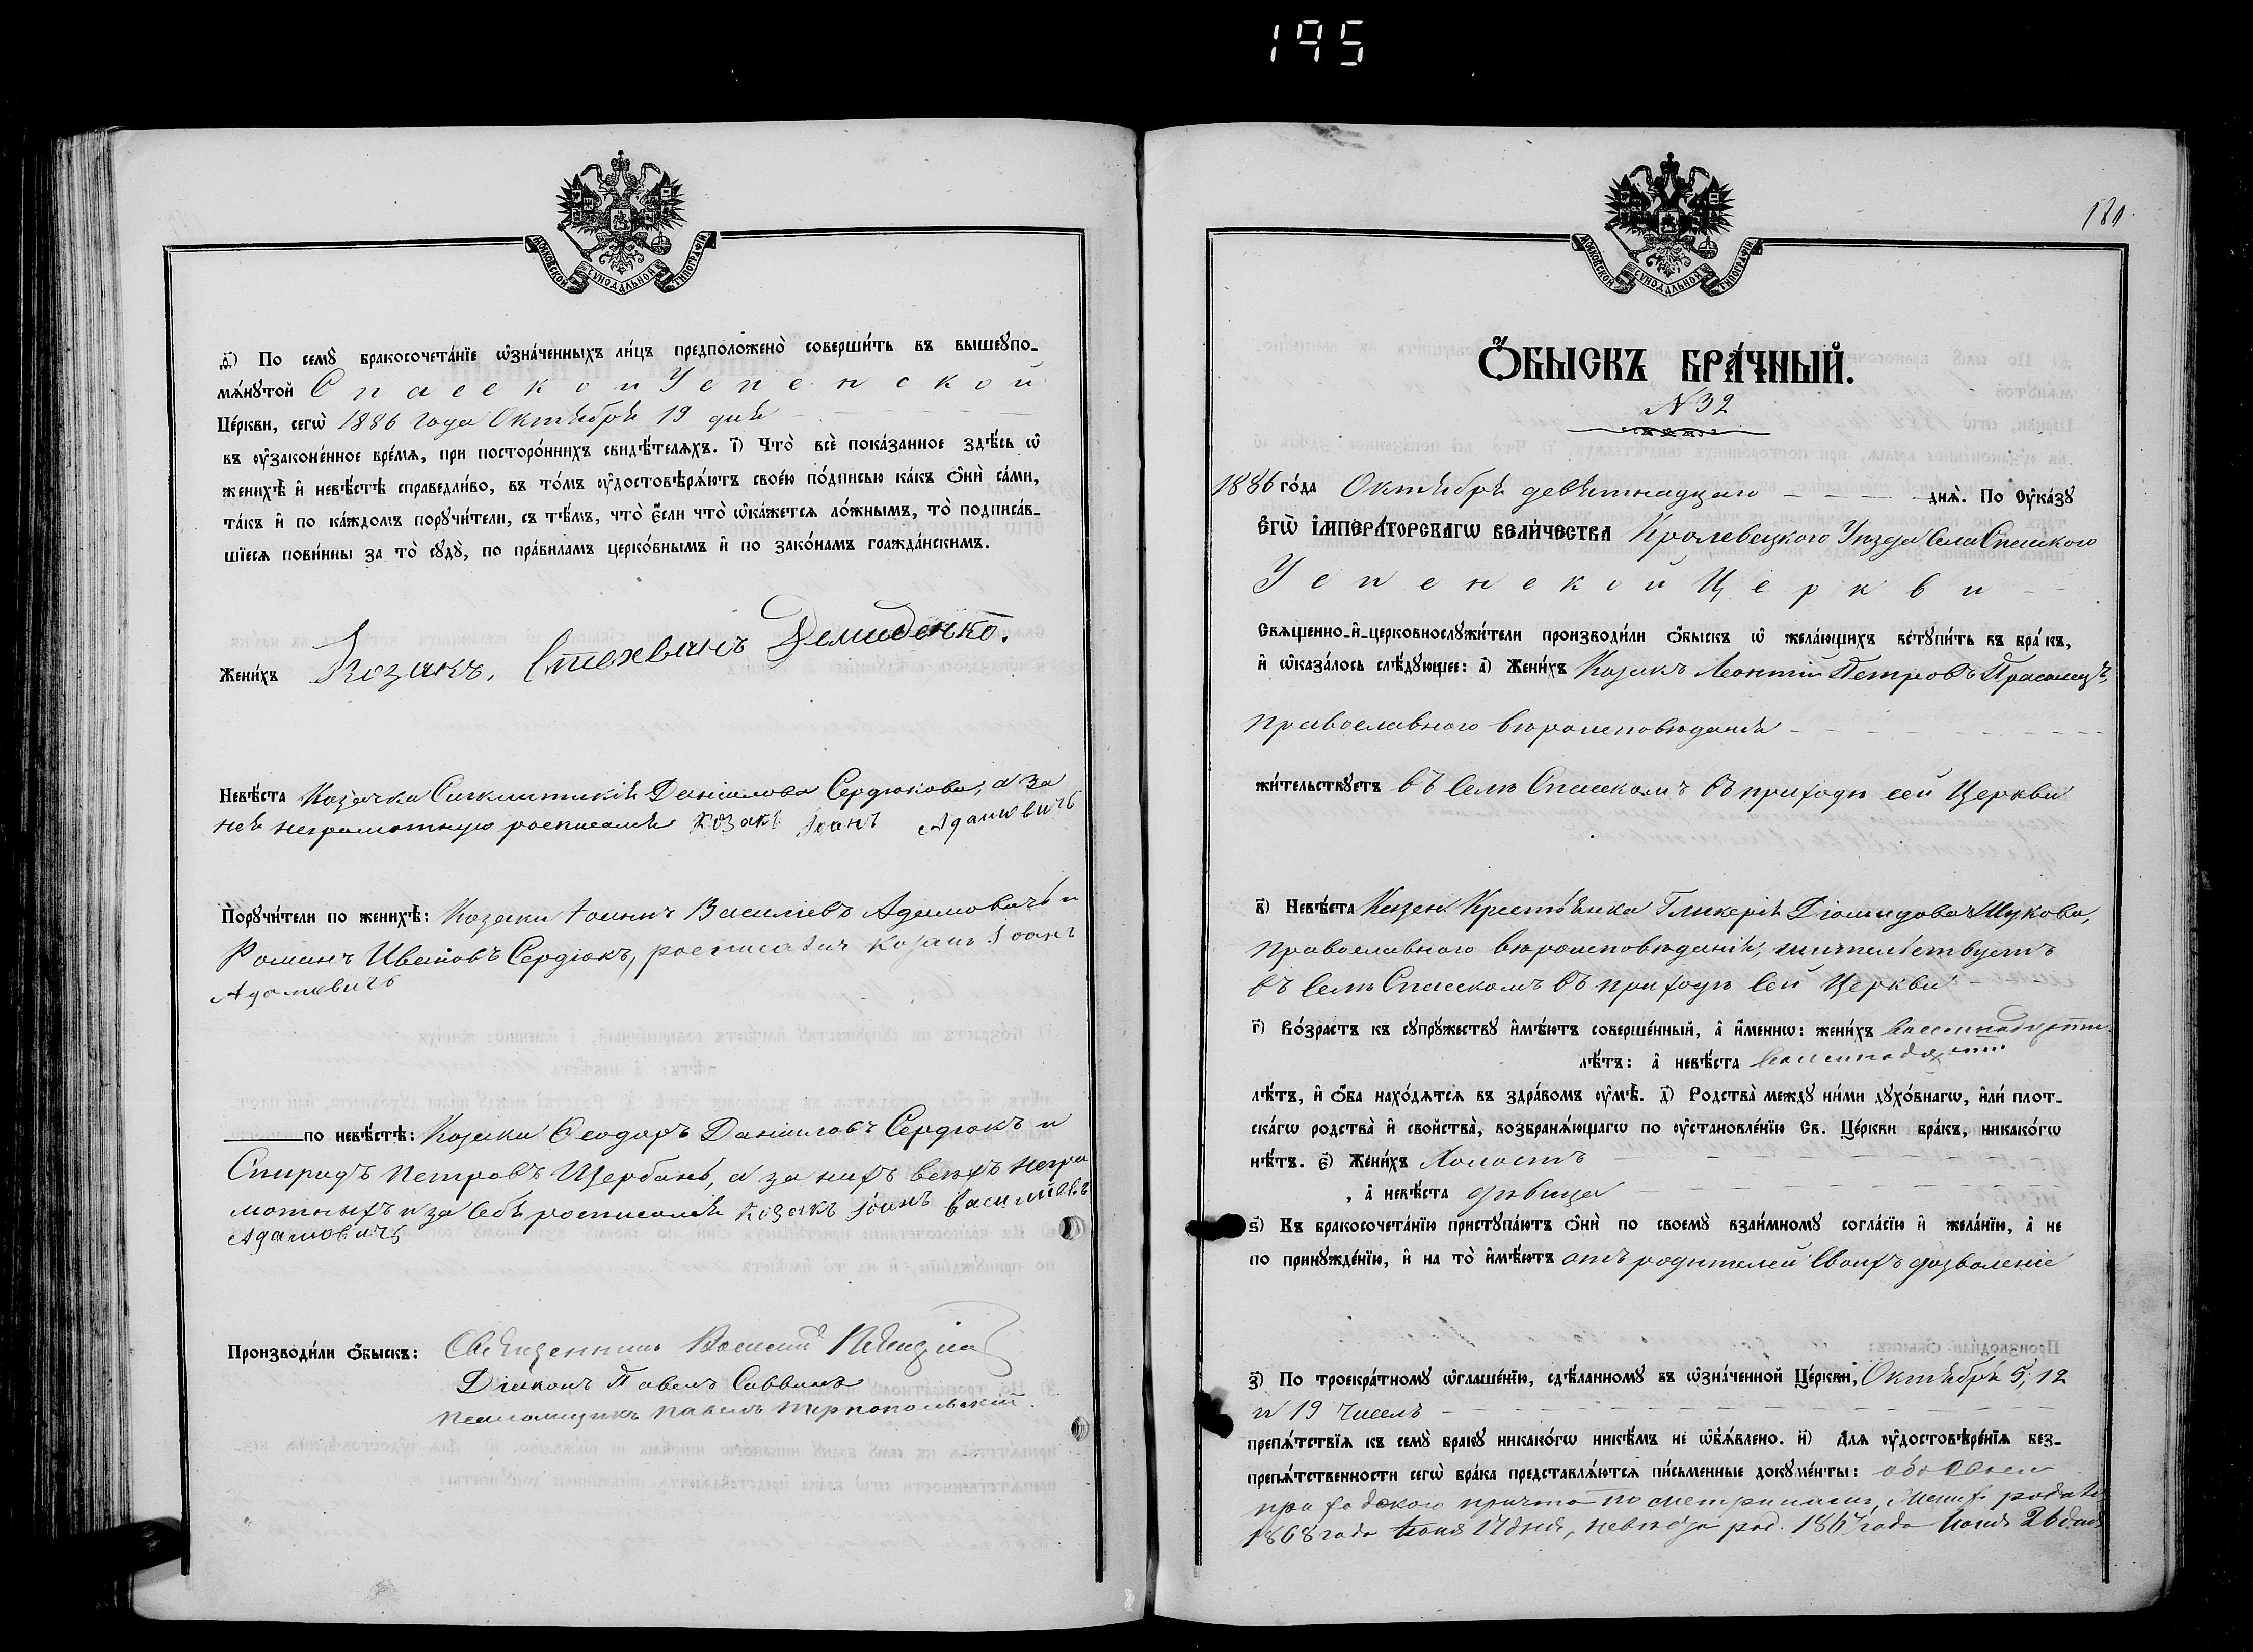 195
МОСКОВСКОЙ СУНОДАЛЬНОЙ ТИПОГРАФІИ
д҃) По семꙋ̀ бракосочета́нїе ѡ҆зна́ченныхъ ли́цъ предположено̀ соверши́ть въ вышеꙋпо-
мѧ́нꙋтой Спасской Успенской
Це́ркви, сегѡ̀ 1886 года Октября 19 дня
въ ᲂу҆законе́нное вре́мѧ, при посторо́ннихъ свидѣ́телѧхъ. і҃) Что̀ всѐ пока́занное здѣ́сь ѡ҆
женихѣ̀ и҆ невѣ́стѣ справедли́во, въ то́мъ ᲂу҆достовѣрѧ́ютъ свое́ю по́дписью ка́къ ѻ҆нѝ са́ми,
та́къ и҆ по ка́ждомъ порꙋчи́тели, съ тѣ́мъ, что̀ є҆́сли что̀ ѡ҆ка́жетсѧ ло́жнымъ, то̀ подписа́в-
шїесѧ пови́нны за то̀ сꙋдꙋ̀, по пра́виламъ церко́внымъ и҆ по зако́намъ гражда́нскимъ.
Жени́хъ Козакъ, Стехванъ Демиденко.
Невѣ́ста Козачка Данилова Сердюкова, а за
нея неграмотную росписался Козакъ Іоанъ Адамовичъ
Порꙋчи́тели по женихѣ̀: Козаки Іоаннъ Василіевъ Адамовичъ и
Романъ Ивановъ Сердюкъ, росписался козакъ Іоанъ
Адамовичъ
по невѣ́стѣ: Козаки Ѳеодоръ Даниловъ Сердюкъ и
Спиридъ Петровъ Щербань, а за нихъ всехъ негра
мотныхъ и за себя росписался козакъ Іоанъ Василіевъ
Адамовичъ
Производи́ли ѻ҆́быскъ: Священникъ Василій
Діаконъ Павелъ Саввинъ
Псаломщикъ Павелъ Тарнопольскій.
МОСКОВСКОЙ СУНОДАЛЬНОЙ ТИПОГРАФІИ
180.
Ѻ҆́БЫСКЪ БРА́ЧНЫЙ.
№ 32
1886 го́да Октября девятнадцаго днѧ̀. По ᲂу҆ка́зꙋ
Є҆ГѠ̀ І҆МПЕРА́ТОРСКАГѠ ВЕЛИ́ЧЕСТВА Кролевецкого Уѣзда Села Спаского
Успенской Церкви
Свѧщенно-и҆-церковнослꙋжи́тели производи́ли ѻ҆́быскъ ѡ҆ жела́ющихъ встꙋпи́ть въ бра́къ,
и҆ ѡ҆каза́лось слѣ́дꙋющее: а҃) Жени́хъ Козакъ Леонтій Петровъ
православного вѣроисповѣданія
жи́тельствꙋетъ въ Селѣ Спасскомъ въ приходѣ сей Церкви
в҃) Невѣ́ста Казен. Крестьянка Гликерія Діомидова Шукова,
православного вѣроисповѣданія, жительствуетъ
въ Селѣ Спасскомъ въ приходѣ сей Церкви
г҃) Во́зрастъ къ сꙋпрꙋ́жествꙋ и҆мѣ́ютъ соверше́нный, а҆ и҆́меннѡ: жени́хъ восемнадцати
лѣ́тъ: а҆ невѣ́ста восемнадцати
лѣ́тъ, и҆ ѻ҆́ба нахо́дѧтсѧ въ здра́вомъ ᲂу҆мѣ̀. д҃) Родства̀ междꙋ ни́ми дꙋхо́внагѡ, и҆лѝ плот-
ска́гѡ родства̀ и҆ свойства̀, возбранѧ́ющагѡ по ᲂу҆становле́нїю Св. Це́ркви бра́къ, никако́гѡ
нѣ́тъ. є҃) Жени́хъ Холостъ
, а҆ невѣ́ста дѣвица
ѕ҃) Къ бракосочета́нїю пристꙋпа́ютъ ѻ҆нѝ по своемꙋ̀ взаи́мномꙋ согла́сїю и҆ жела́нїю, а҆ не
по принꙋжде́нїю, и҆ на то̀ и҆мѣ́ютъ отъ родителей своихъ дозволеніе
з҃) По троекра́тномꙋ ѡ҆глаше́нїю, сдѣ́ланномꙋ въ ѡ҆зна́ченной Це́ркви, Октября 5, 12
и 19 чиселъ
препѧ́тствїѧ къ семꙋ̀ бракꙋ никако́гѡ никѣ́мъ не ѡ҆б̾ѧ́влено. и҃) Длѧ ᲂу҆достовѣре́нїѧ без-
препѧ́тственности сегѡ̀ бра́ка представлѧ́ютсѧ пи́сьменные докꙋме́нты: обыскъ
приходскаго причта по метрикамъ, жених родился
1868 года Іюня 17 дня, невѣста род. 1867 года Іюня 26 дня